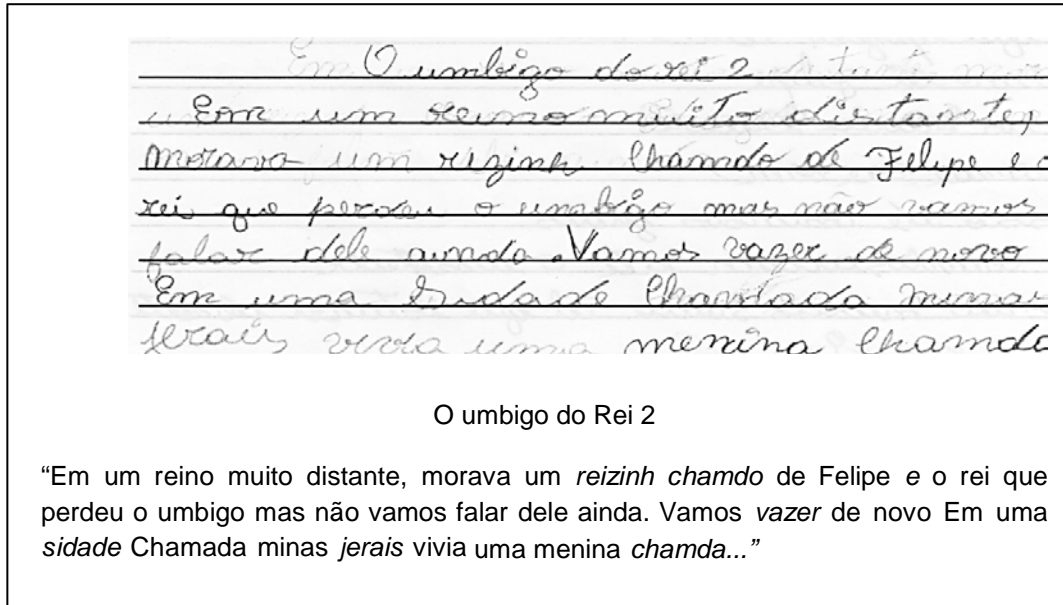 O umbigo do rei 2
Em um reino muito distante,
morava um rizinh chamdo de Felipe e o
rei que perdeu o umbigo mas não vamos
falar dele ainda. Vamos vazer de novo
Em uma sidade Chamada minas
jerais vivia uma menina chamda
O umbigo do Rei 2
“Em um reino muito distante, morava um reizinh chamdo de Felipe e o rei que
perdeu o umbigo mas não vamos falar dele ainda. Vamos vazer de novo Em uma
sidade Chamada minas jerais vivia uma menina chamda...”